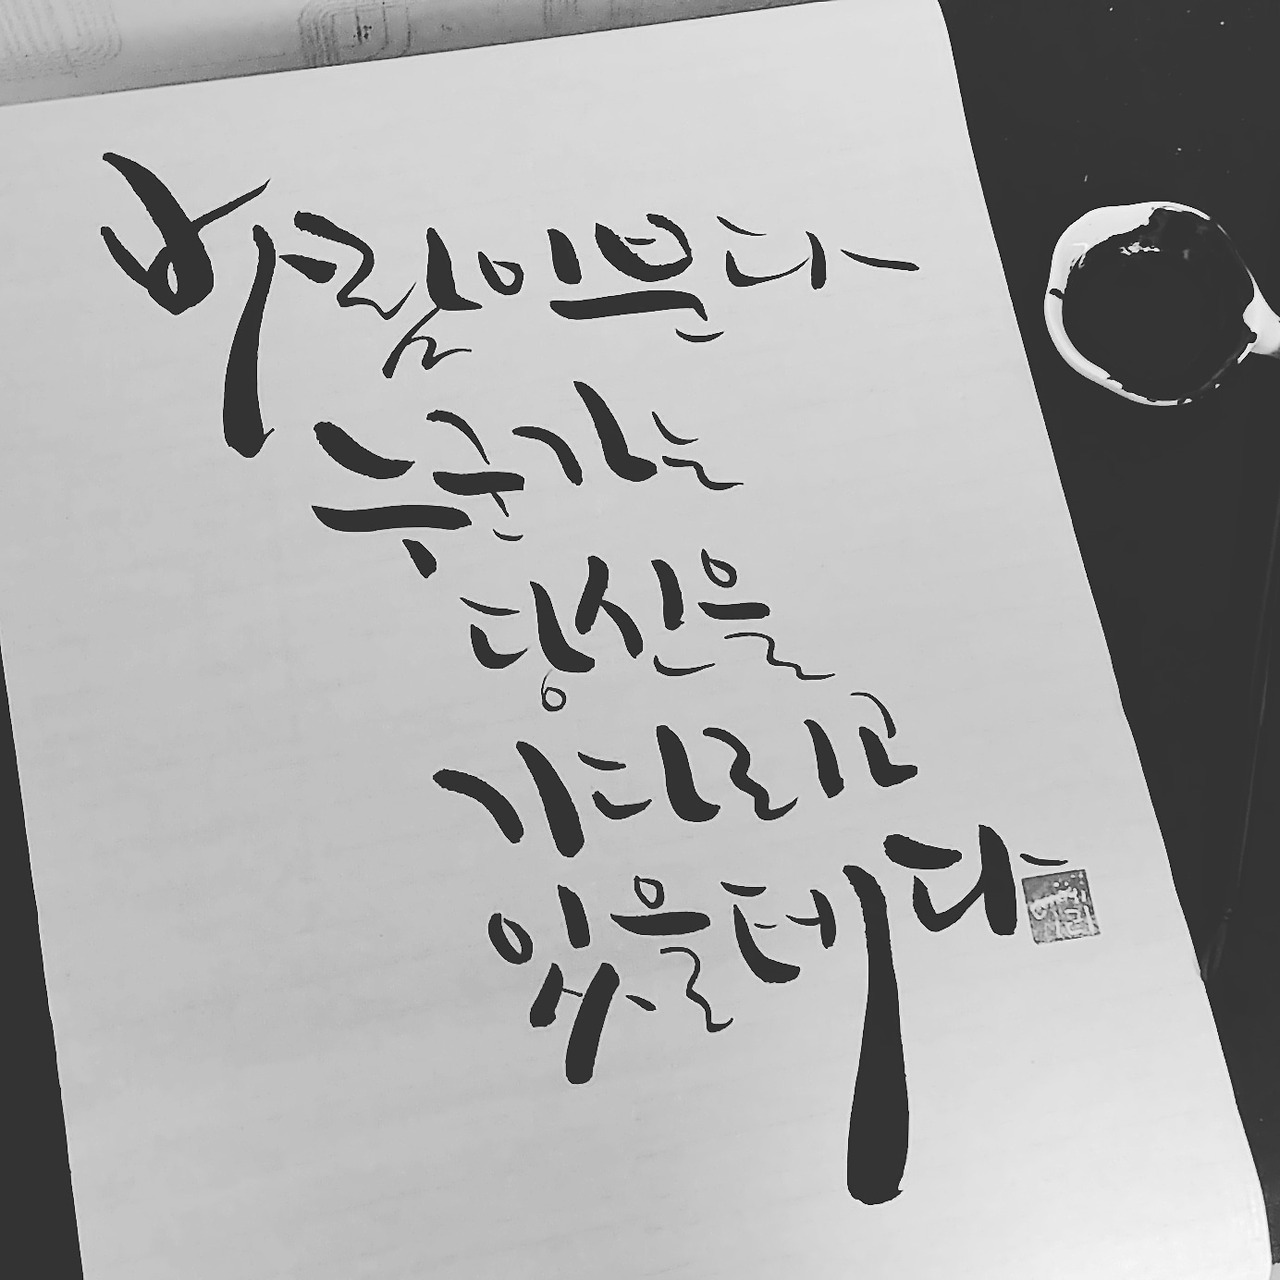 바람이분다
누군가는
당신을
기다리고
있을테다